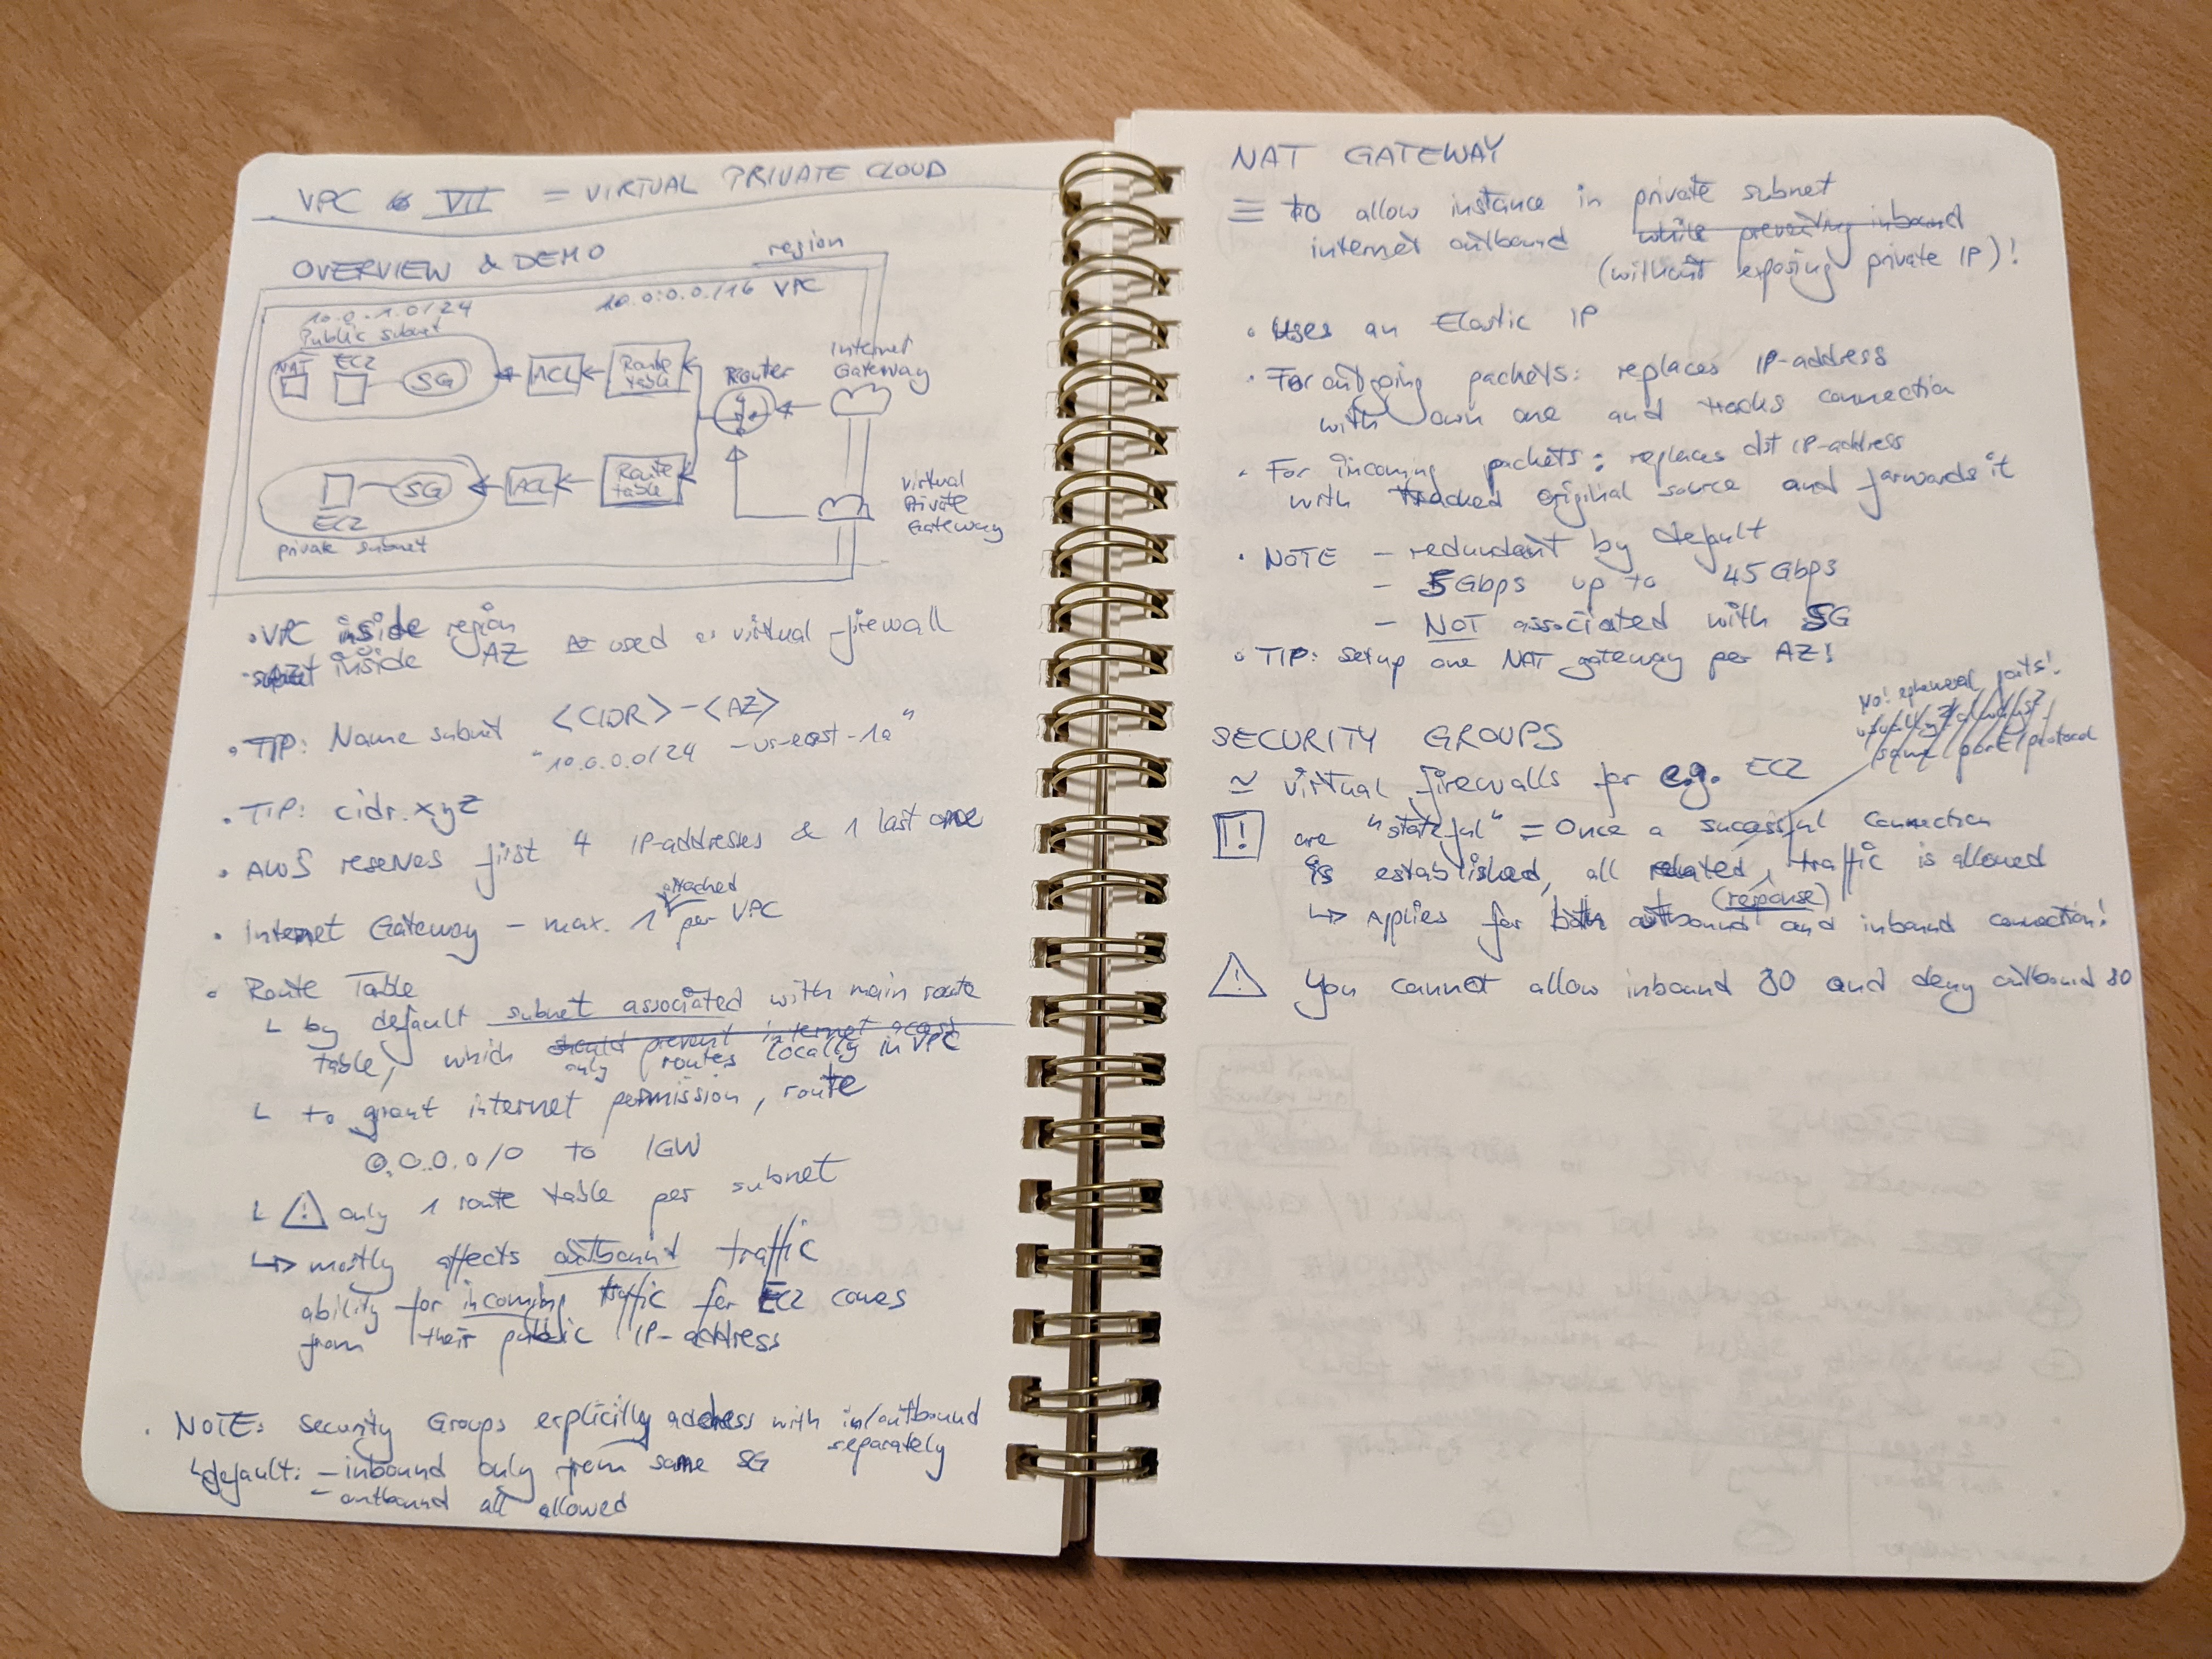 VPC VII = VIRTUAL PRIVATE CLOUD
OVERVIEW & DEMO
region
10.0.0.0/16 VPC
10.0.1.0/24
Public subnet
NAT EC2 SG
ACL
Route table
Router
Internet Gateway
EC2 SG
ACL
Route table
virtual Private Gateway
private subnet
• VPC inside region
• subnet inside AZ used as virtual firewall
• TIP: Name subnet <CIDR>-<AZ>
"10.0.0.0/24 -us-east-1a"
• TIP: cidr.xyz
• AWS reserves first 4 IP-addresses & 1 last one
• Internet Gateway - max. 1 attached per VPC
• Route Table
└ by default subnet associated with main route
table, which should prevent internet access
only routes locally in VPC
└ to grant internet permission, route
0.0.0.0/0 to IGW
└ ! only 1 route table per subnet
↳ mostly affects outbound traffic
ability for incoming traffic for EC2 comes
from their public IP-address
• NOTE: Security Groups explicitly address with in/outbound
separately
↳ default: - inbound only from same SG
- outbound all allowed
NAT GATEWAY
≡ to allow instance in private subnet
internet outbound while preventing inbound
(without exposing private IP)!
• Uses an Elastic IP
• For outgoing packets: replaces IP-address
with own one and tracks connection
• For incoming packets: replaces dst IP-address
with tracked original source and forwards it
• NOTE - redundant by default
- 5Gbps up to 45Gbps
- NOT associated with SG
• TIP: setup one NAT gateway per AZ!
No! ephemeral ports!
same port/protocol
SECURITY GROUPS
≃ virtual firewalls for e.g. EC2
! are "stateful" = Once a sucessful connection
is established, all related traffic is allowed
(response)
↳ Applies for both outbound and inbound connection!
! You cannot allow inbound 80 and deny outbound 80